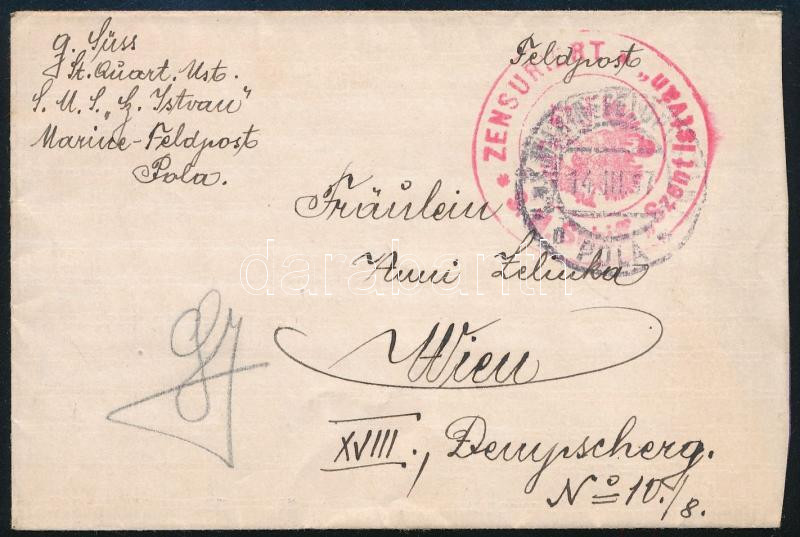 G. Süss
St. Quart. Mst.
S. M. S. „Sz. Istvan"
Marine-Feldpost
Pola.
Feldpost
* ZENSURIERT *
Szent István"
MARINEFELDPOST
14.III.17
POLA
Fräulein
Anni Zelinka
Wien
XVIII., Dempscherg.
No 10./8.
darabanth